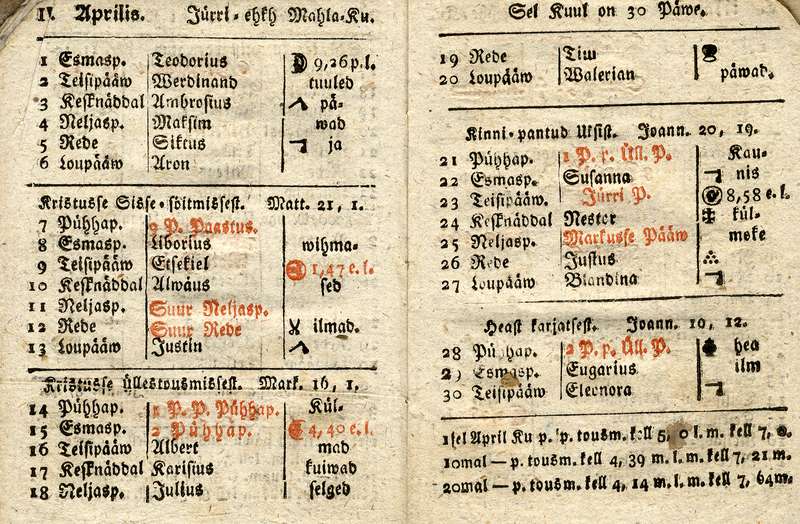 IV. Aprilis. Jürri-ehkh Mahla-Ku.
1 Esmasp. Teodorius 9,26 p.l.
2 Teisipääw Werdinand tuuled
3 Kesknäddal Ambrosius pä-
4 Neljasp. Maksim wad
5 Rede Siktus ja
6 Loupääw Aron
Kristusse Sisse-sõitmissest. Matt. 21, 1.
7 Pühhap. P. Paastus.
8 Esmasp. Liborius wihma-
9 Teisipääw Etsekiel 1,47 e.l.
10 Kesknäddal Alwäus sed
11 Neljasp. Suur Neljasp.
12 Rede Suur Rede ilmad.
13 Loupääw Justin
Kristusse üllestousmissest. Mark. 16, 1.
14 Pühhap. 1 P. P. Pühhap. Kül-
15 Esmasp. 2 Pühhap. 4,40 e.l.
16 Teisipääw Albert mad
17 Kesknäddal Karisius kuiwad
18 Neljasp. Julius selged
Sel Kuul on 30 Päwe.
19 Rede Tiw
20 Loupääw Walerian päwad.
Kinni-pantud Uksist. Joann. 20, 19.
21 Pühhap. 1 P. p. Üll. P. Kau-
22 Esmasp. Susanna nis
23 Teisipääw. Jürri P. 8,58 e.l.
24 Kesknäddal Nestor kül-
25 Neljasp. Markusse Pääw meke
26 Rede Justus
27 Loupääw Blandina
Heast karjatsest. Joann. 10, 12.
28 Pühhap. 2 P. p. Üll. P. hea
29 Esmasp. Eugarius ilm
30 Teisipääw Eleonora
1sel April Ku p. p. tousm. kell 5, 0 l. m. kell 7, 0.
10mal — p. tousm. kell 4, 39 m. l. m. kell 7, 21 m.
20mal — p. tousm. kell 4, 14 m. l. m. kell 7, 64m.